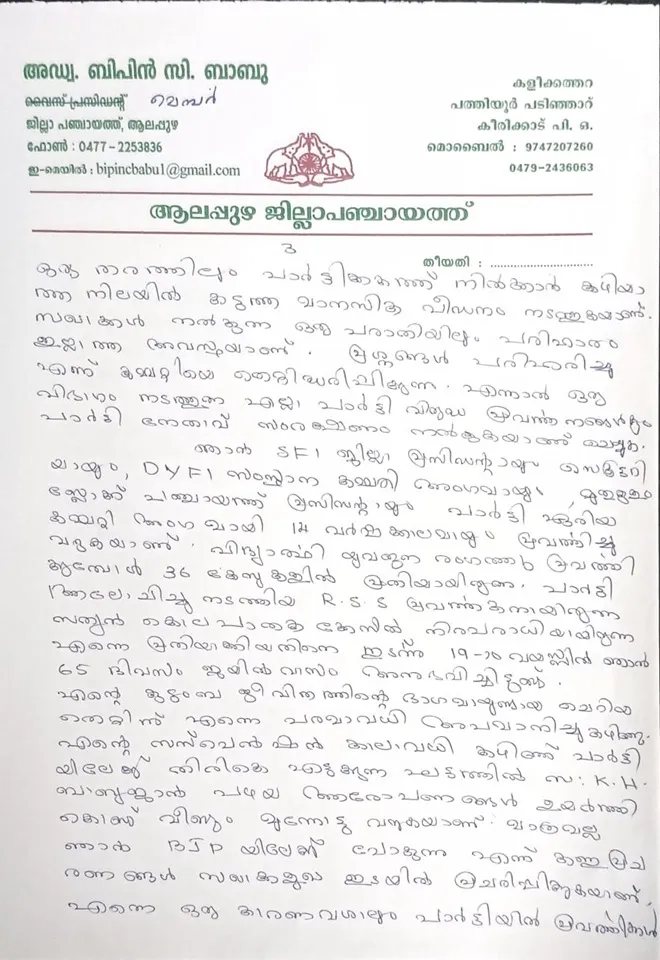 അഡ്വ. ബിപിൻ സി. ബാബു
വൈസ് പ്രസിഡന്റ് മെമ്പർ
ജില്ലാ പഞ്ചായത്ത്, ആലപ്പുഴ
ഫോൺ : 0477 - 2253836
ഇ-മെയിൽ : bipincbabu1@gmail.com
കളീക്കത്തറ
പത്തിയൂർ പടിഞ്ഞാറ്
കീരിക്കാട് പി. ഒ.
മൊബൈൽ : 9747207260
0479-2436063
ആലപ്പുഴ ജില്ലാപഞ്ചായത്ത്
3
തീയതി : ..............................
ഒരു തരത്തിലും പാർട്ടിക്കകത്ത് നിൽക്കാൻ കഴിയാ
ത്ത നിലയിൽ കടുത്ത മാനസിക പീഡനം നടത്തുകയാണ്.
സഖാക്കൾ നൽകുന്ന ഒരു പരാതിയിലും പരിഹാരം
ഇല്ലാത്ത അവസ്ഥയാണ്. പ്രശ്നങ്ങൾ പരിഹരിച്ചു
എന്ന് കമ്മറ്റിയെ തെറ്റിദ്ധരിപ്പിക്കുന്നു. എന്നാൽ ഒരു
വിഭാഗം നടത്തുന്ന എല്ലാ പാർട്ടി വിരുദ്ധ പ്രവർത്തനങ്ങൾക്കും
പാർട്ടി നേതാവ് സംരക്ഷണം നൽകുകയാണ് ചെയ്യുക.
ഞാൻ SFI ജില്ലാ പ്രസിഡന്റായും സെക്രട്ടറി
യായും, DYFI സംസ്ഥാന കമ്മതി അംഗമായും, മുതുകുളം
ബ്ലോക്ക് പഞ്ചായത്ത് പ്രസിഡന്റായും പാർട്ടി ഏരിയ
കമ്മറ്റി അംഗമായി 14 വർഷക്കാലമായും പ്രവർത്തിച്ചു
വരുകയാണ്. വിദ്യാർത്ഥി യുവജന രംഗത്ത് പ്രവർത്തി
ക്കുമ്പോൾ 36 കേസുകളിൽ പ്രതിയായിരുന്നു. പാർട്ടി
ആലോചിച്ചു നടത്തിയ R.S.S പ്രവർത്തകനായിരുന്ന
സത്യൻ കൊലപാതക കേസിൽ നിരപരാധിയായിരുന്ന
എന്നെ പ്രതിയാക്കിയതിനെ തുടർന്ന് 19-20 വയസ്സിൽ ഞാൻ
65 ദിവസം ജയിൽവാസം അനുഭവിച്ചിട്ടുണ്ട്.
എന്റെ കുടുംബ ജീവിതത്തിന്റെ ഭാഗമായുണ്ടായ ചെറിയ
തെറ്റിന് എന്നെ പരമാവധി അപമാനിച്ചു കഴിഞ്ഞു.
എന്റെ സസ്പെൻഷൻ കാലാവധി കഴിഞ്ഞ് പാർട്ടി
യിലേക്ക് തിരികെ എടുക്കുന്ന ഘട്ടത്തിൽ സ: K.H.
ബാബുജാൻ പഴയ ആരോപണങ്ങൾ ഉയർത്തി
കൊണ്ട് വീണ്ടും മുന്നോട്ടു വരുകയാണ്. മാത്രവുമല്ല
ഞാൻ BJP യിലേക്ക് പോകുന്നു എന്ന് കള്ള പ്രച
രണങ്ങൾ സഖാക്കളുടെ ഇടയിൽ പ്രചരിപ്പിക്കുകയാണ്,
എന്നെ ഒരു കാരണവശാലും പാർട്ടിയിൽ പ്രവർത്തിക്കാൻ